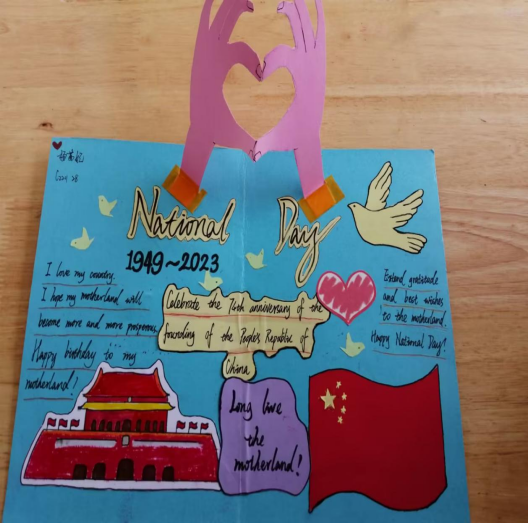 National Day
1949~2023
I love my country.
I hope my motherland will
become more and more prosperous
Happy birthday to my
motherland!
Celebrate the 74th anniversary of the
founding of the Peoples Republic of
China
Extend gratitude
and best wishes
to the motherland.
Happy National Day!
Long live
the
motherland!